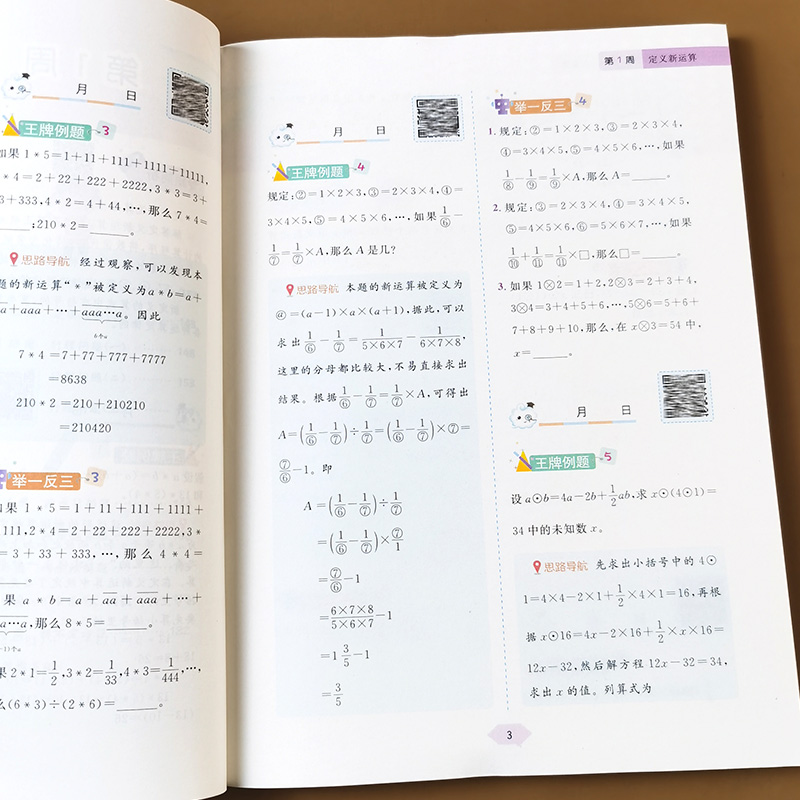 月 日
王牌例题 3
如果 1*5=1+11+111+1111+11111,
*4=2+22+222+2222,3*3=3+
3+333,4*2=4+44,…,那么 7*4=
______;210*2=______。
思路导航 经过观察,可以发现本
题的新运算“*”被定义为 a*b=a+
aa+aaa+…+aa…a。因此
b个a
7*4=7+77+777+7777
=8638
210*2=210+210210
=210420
举一反三 3
如果 1*5=1+11+111+1111+
111,2*4=2+22+222+2222,3*
=3+33+333,…,那么 4*4=
______。
果 a*b=a+aa+aaa+…+
a…a,那么 8*5=______。
-1)个a
果 2*1=1/2,3*2=1/33,4*3=1/444,…,
么(6*3)÷(2*6)=______。
第1周 定义新运算
月 日
王牌例题 4
规定:②=1×2×3,③=2×3×4,④=
3×4×5,⑤=4×5×6,…,如果1/⑥-
1/⑦=1/⑦×A,那么 A 是几?
思路导航 本题的新运算被定义为
ⓐ=(a-1)×a×(a+1),据此,可以
求出1/⑥-1/⑦=1/(5×6×7)-1/(6×7×8),
这里的分母都比较大,不易直接求出
结果。根据1/⑥-1/⑦=1/⑦×A,可得出
A=(1/⑥-1/⑦)÷1/⑦=(1/⑥-1/⑦)×⑦=
⑦/⑥-1。即
A=(1/⑥-1/⑦)÷1/⑦
=(1/⑥-1/⑦)×⑦/1
=⑦/⑥-1
=(6×7×8)/(5×6×7)-1
=1 3/5-1
=3/5
举一反三 4
1. 规定:②=1×2×3,③=2×3×4,
④=3×4×5,⑤=4×5×6,…,如果
1/⑧-1/⑨=1/⑨×A,那么A=______。
2. 规定:③=2×3×4,④=3×4×5,
⑤=4×5×6,⑥=5×6×7,…,如果
1/⑩+1/⑪=1/⑪×□,那么□=______。
3. 如果 1⊗2=1+2,2⊗3=2+3+4,
3⊗4=3+4+5+6,…,5⊗6=5+6+
7+8+9+10,那么,在 x⊗3=54 中,
x=______。
月 日
王牌例题 5
设 a⊙b=4a-2b+1/2ab,求 x⊙(4⊙1)=
34 中的未知数 x。
思路导航 先求出小括号中的 4⊙
1=4×4-2×1+1/2×4×1=16,再根
据 x⊙16=4x-2×16+1/2×x×16=
12x-32,然后解方程 12x-32=34,
求出 x 的值。列算式为
3